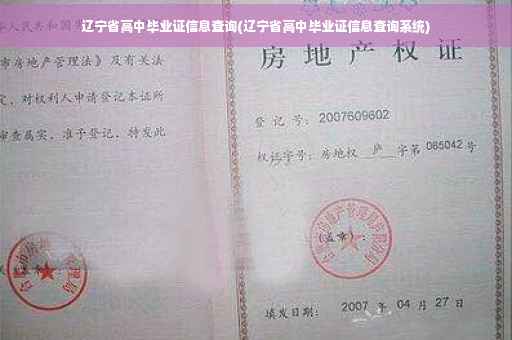 辽宁省高中毕业证信息查询(辽宁省高中毕业证信息查询系统)
华人民共和国
市房地产管理法》及有关法
定，对权利人申请登记本证所
审查属实，准予登记，特发此
房地产权证
登记号：2007609602
权证字号：房地权 庐 字第 065042 号
(盖章)：
填发日期： 2007 年 04 月 27 日